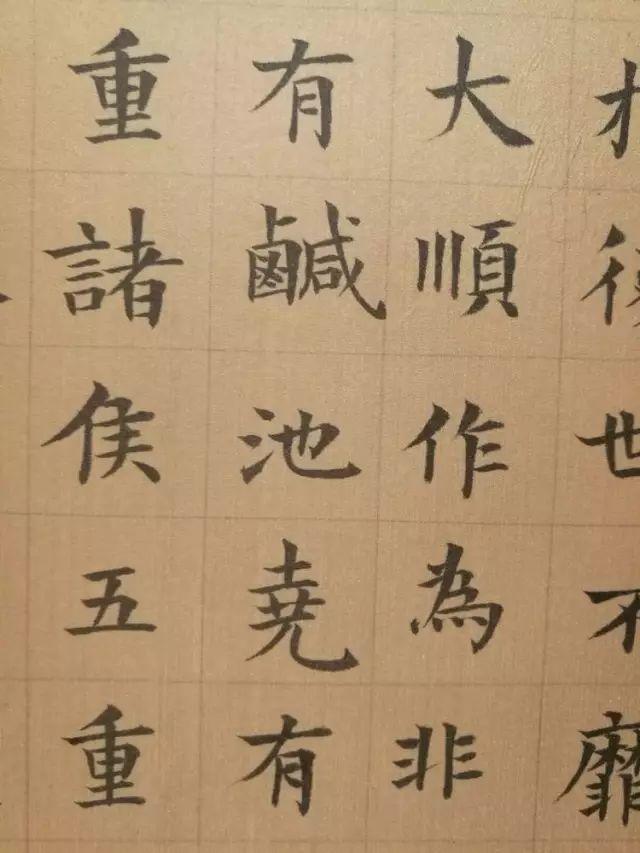 後世不靡
大順作為非
有鹹池尭有
重諸侯五重